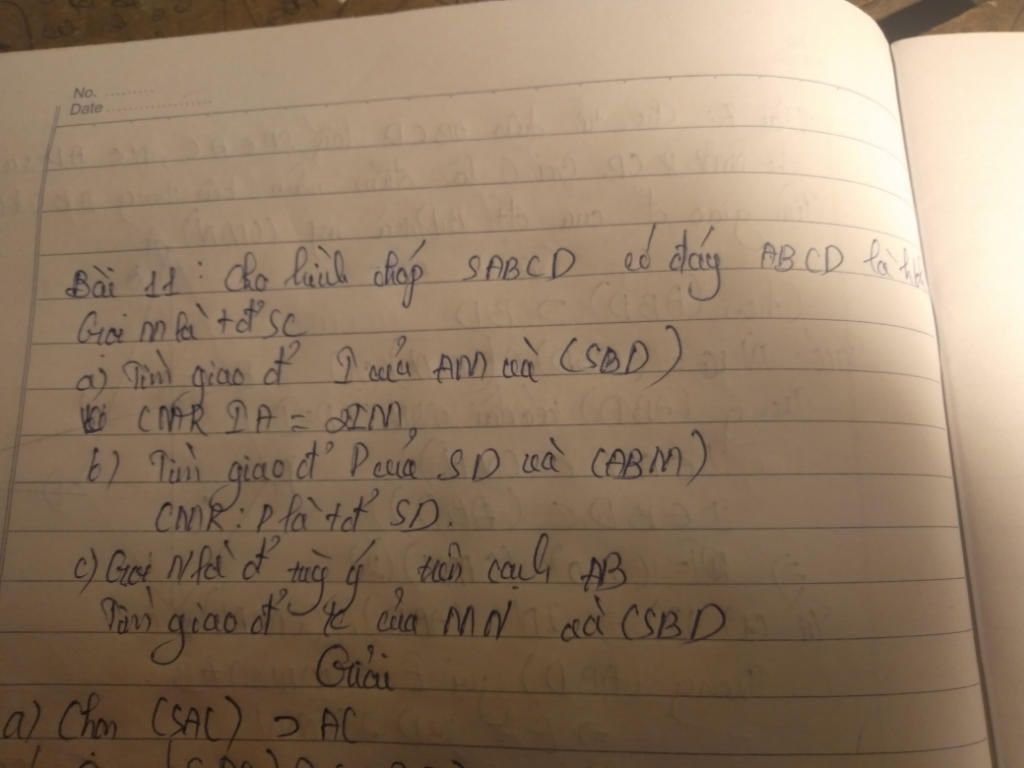 No. ..........
Date ......................
Bài 11 : Cho hình chóp SABCD có đáy ABCD là
Gọi M là t đ' SC
a) Tìm giao đ' I của AM và (SBD)
CMR IA = 2IM,
b) Tìm giao đ' P của SD và (ABM)
CMR : P là t đ' SD.
c) Gọi N là đ' tùy ý trên cạnh AB
Tìm giao đ' K của MN và (SBD
Giải
a) Chọn (SAC) ⊃ AC